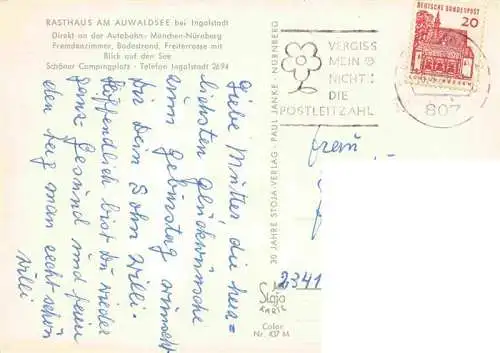 RASTHAUS AM AUWALDSEE bei Ingolstadt
Direkt an der Autobahn München-Nürnberg
Fremdenzimmer, Badestrand, Freiterrasse mit
Blick auf den See
Schöner Campingplatz · Telefon Ingolstadt 2694
Liebe Mutter die herz=
lichsten Glückwünsche
zum Geburtstag wünscht
Dir Dein Sohn Willi.
Hoffendlich bist Du wieder
ganz Gesund und
den tag man recht schön
Willi
30 JAHRE STOJA-VERLAG · PAUL JANKE · NÜRNBERG
VERGISS
MEIN
NICHT
DIE
POSTLEITZAHL
DEUTSCHE BUNDESPOST
20
807
Frau
2341
Stoja
Color
Nr. 437 M